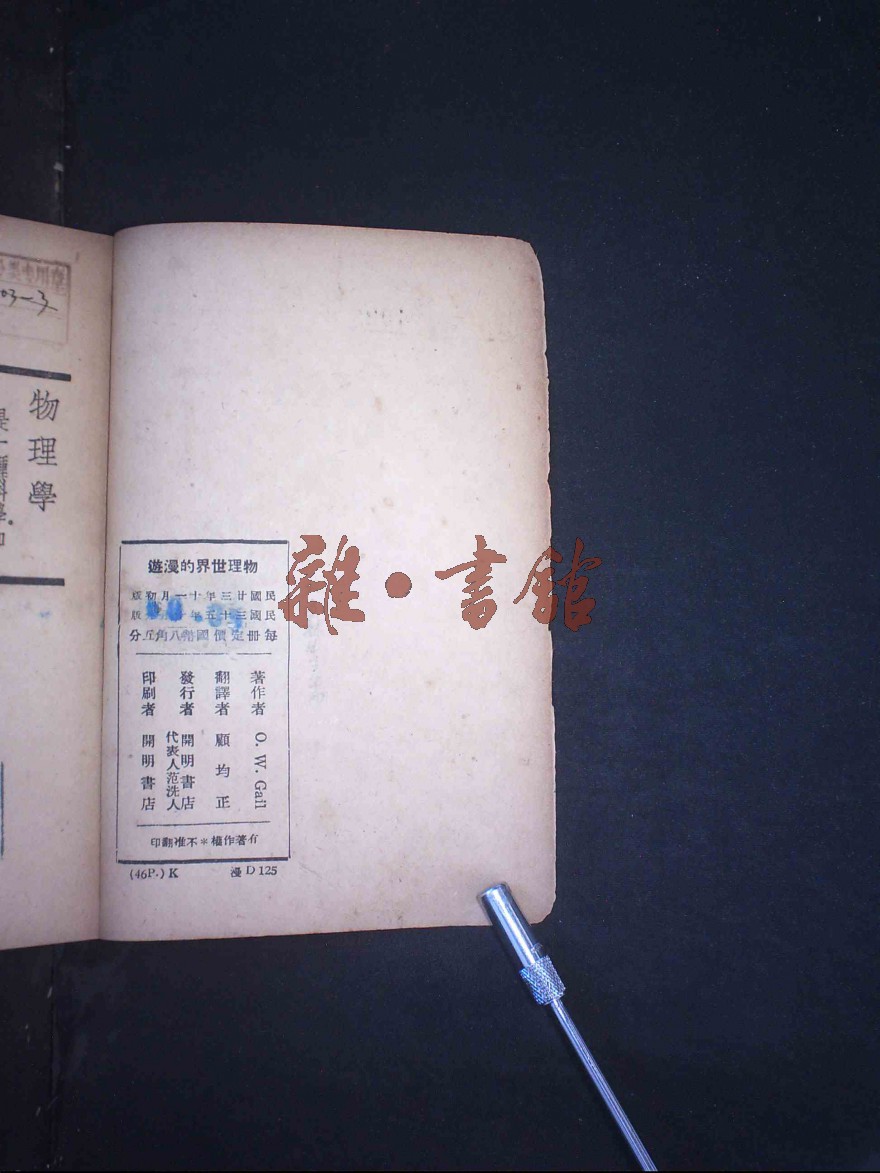 物理世界的漫遊
民國廿三年十一月初版
民國三十五年 版
每冊定價國幣八角五分
著作者 O. W. Gail
翻譯者 顧均正
發行者 開明書店
代表人范洗人
印刷者 開明書店
有著作權＊不准翻印
(46P.) K 漫 D 125
物理學
是一種科學。
03-3
雜·書館